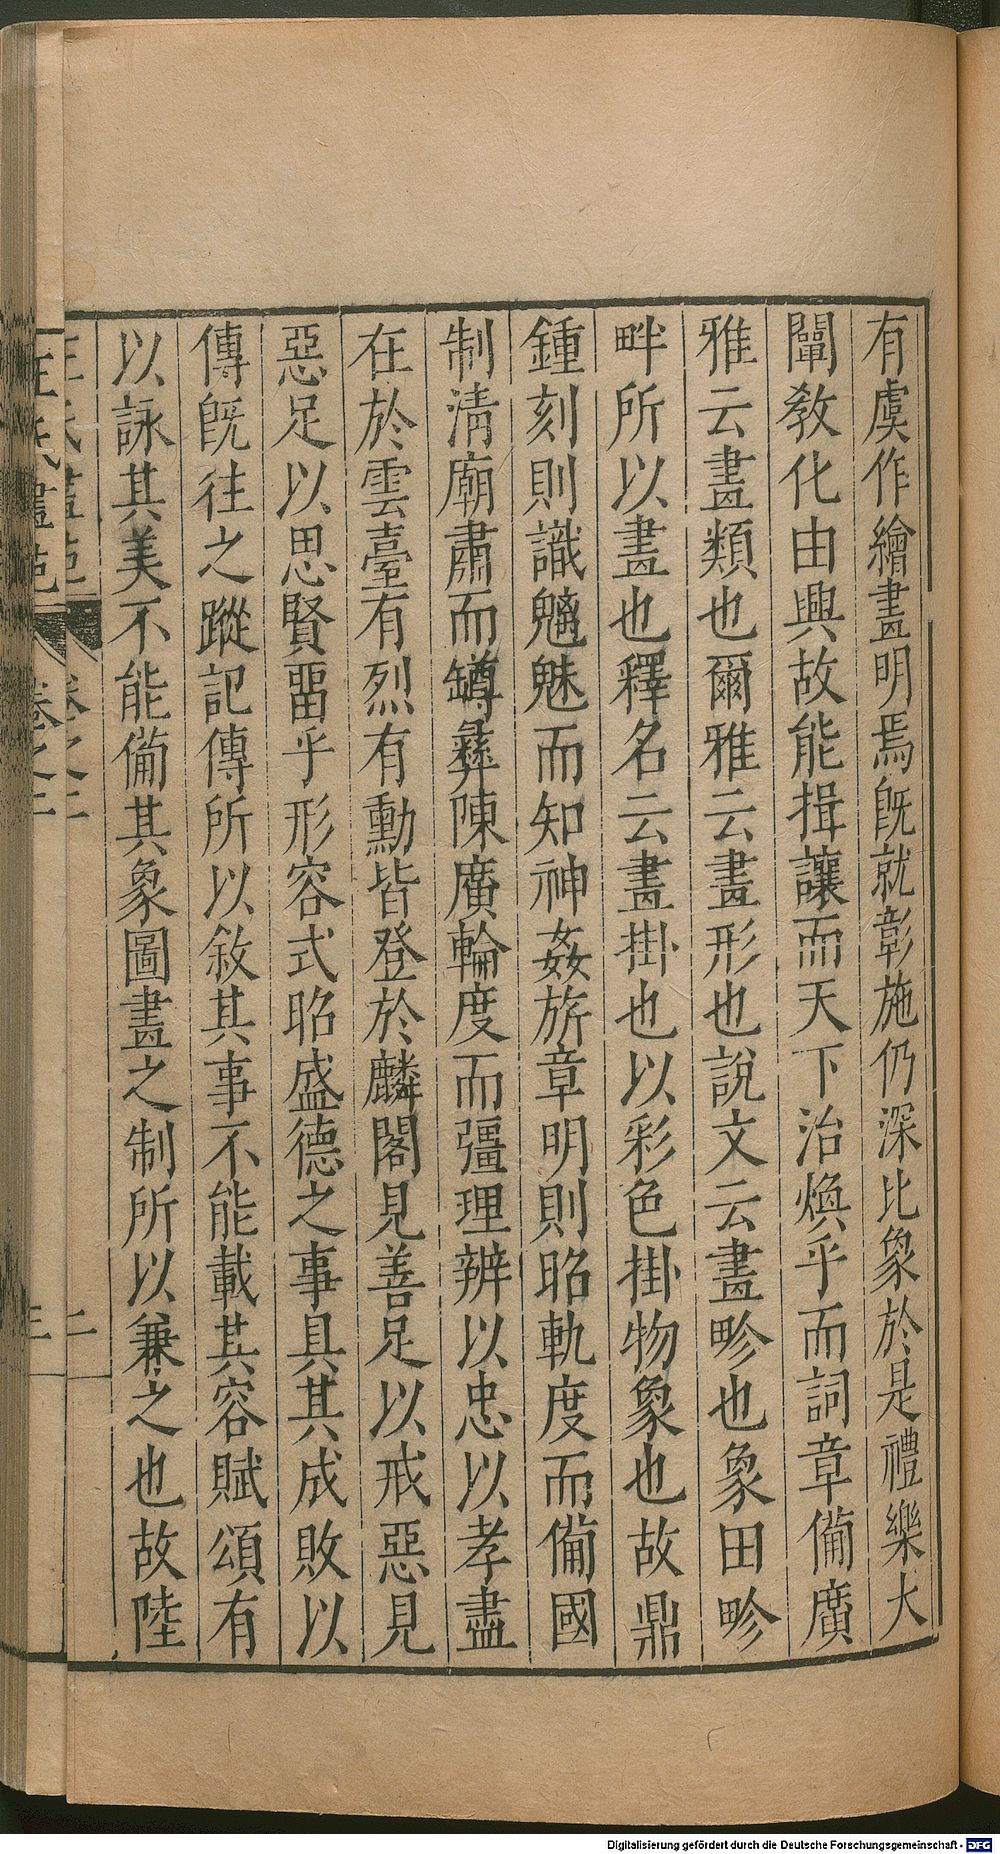 有虞作繪畫明焉旣就彰施仍深比象於是禮樂大
闡敎化由興故能揖讓而天下治煥乎而詞章備廣
雅云畫類也爾雅云畫形也說文云畫畛也象田畛
畔所以畫也釋名云畫掛也以彩色掛物象也故鼎
鍾刻則識魑魅而知神姦旂章明則昭軌度而備國
制清廟肅而罇彝陳廣輪度而彊理辨以忠以孝盡
在於雲臺有烈有勳皆登於麟閣見善足以戒惡見
惡足以思賢畱乎形容式昭盛德之事具其成敗以
傳旣往之蹤記傳所以敘其事不能載其容賦頌有
以詠其美不能備其象圖畫之制所以兼之也故陸
王氏畫苑 卷之二 二
王氏畫苑 卷之二 三
Digitalisierung gefördert durch die Deutsche Forschungsgemeinschaft - DFG